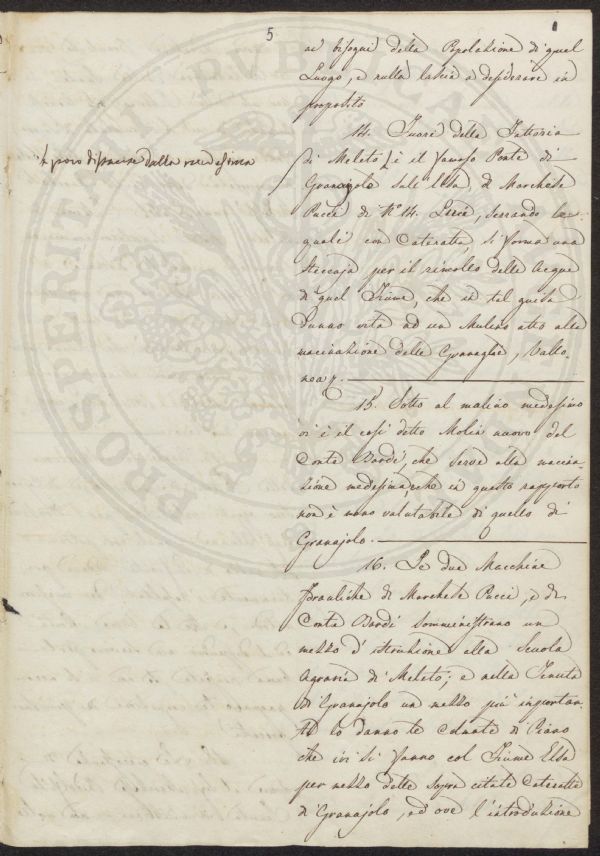 5
ai bisogni della Popolazione di quel
Luogo, e nulla lascia a desiderare in
proposito
14. Fuori della Fattoria
di Meleto è il famoso Ponte di
a poco distanza dalla medesima
Granajolo sull'Elsa, di Marchese
Pucci di N.o 14. Luci, serrando le
quali con Cateratte, si forma una
steccaja per il rincollo delle Acque
di quel Fiume, che in tal guisa
danno vita ad un Mulino atto alla
macinazione delle Granaglie, Vallo
nea
15. Sotto al mulino medesimo
vi è il così detto Molin nuovo del
Conte Bardi, che serve alla macina-
zione medesima, che in questo rapporto
non è meno valutabile di quello di
Granajolo.
16. Le due Macchine
Idrauliche di Marchese Pucci, e di
Conte Bardi somministrano un
mezzo d'istruzione alla Scuola
Agraria di Meleto; e nella Tenuta
di Granajolo un mezzo più importan-
te lo danno le Colmate di Piano
che ivi si fanno col Fiume Elsa
per mezzo delle sopra citate Cateratte
di Granajolo, ed ove l'introduzione
PROSPERITATI PVBLICAE